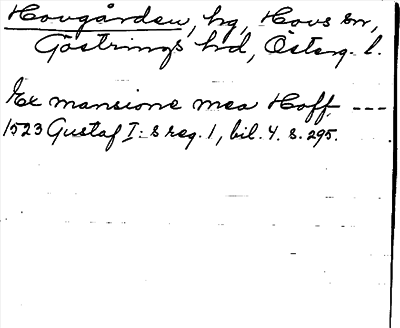 Hovgården, hg, Hovs sn,
Göstrings hd, Österg. l.
Ex mansione mea Hoff ---
1523 Gustaf I:s reg. 1, bil. 4. s. 295.